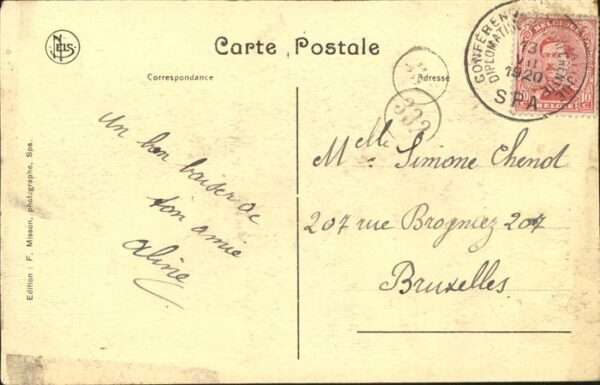 NELS
Carte Postale
Correspondance
Adresse
CONFERENCE DIPLOMATIQUE
13
VII
1920
SPA
332
Un bon baiser de
ton amie
Aline
Melle Simone Chenot
207 rue Brogniez 207
Bruxelles
Edition : F. Misson, photographe, Spa.